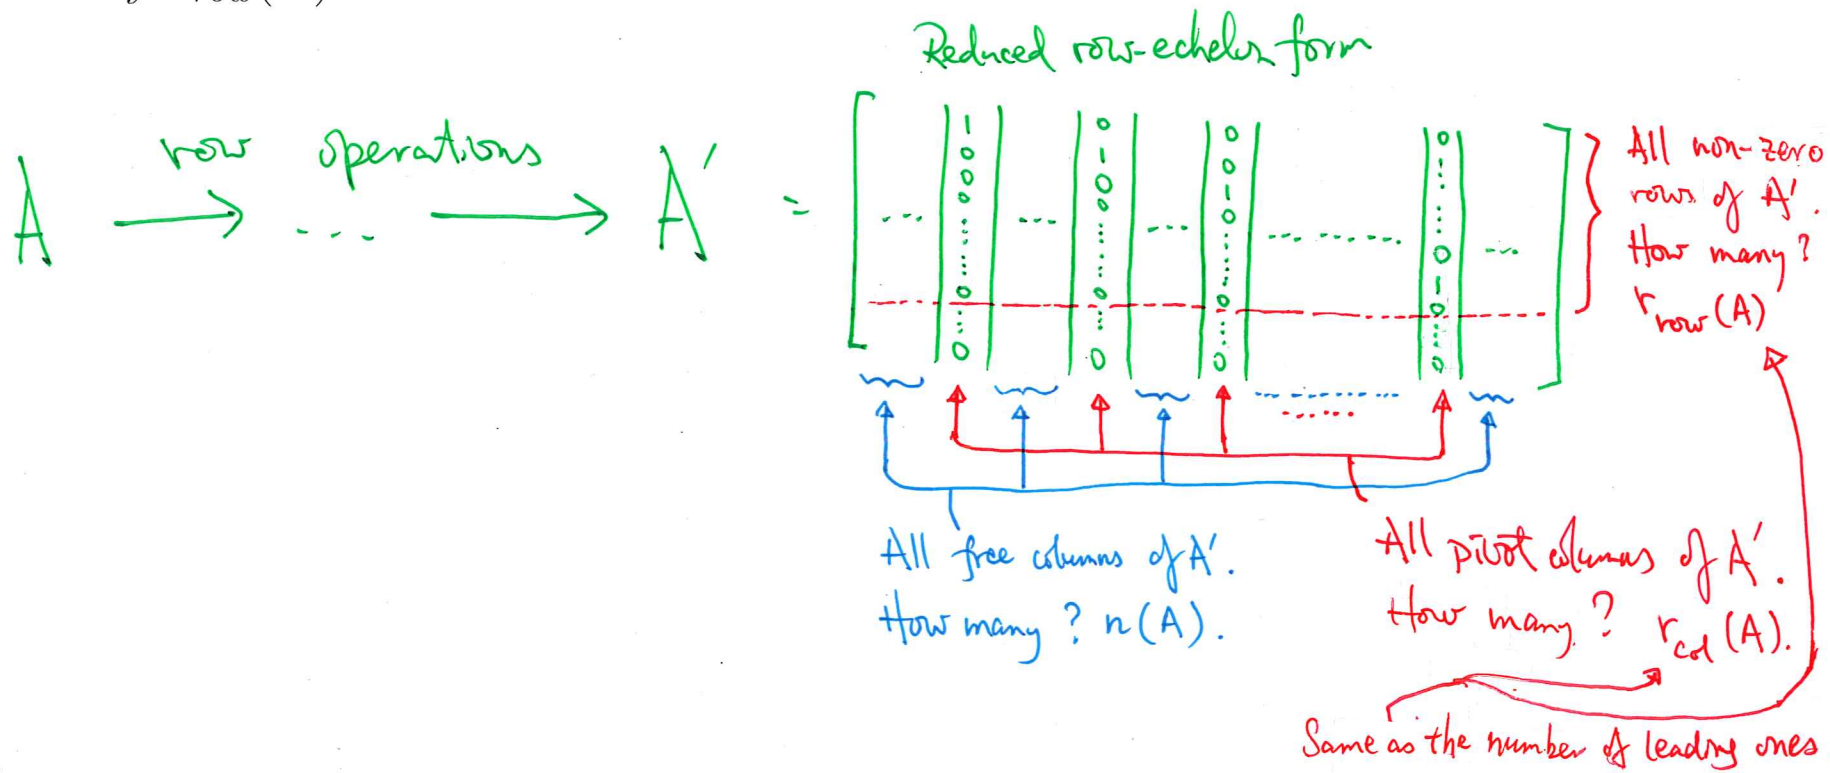 Reduced row-echelon form
A row operations ... A' =
1 0 0 0
0 1 0
0 0 1
0 0 0 0
0 0 0 1
0
0 0 0 0
All non-zero
rows of A'.
How many?
r_row(A)
All free columns of A'.
How many? n(A).
All pivot columns of A'.
How many? r_col(A).
Same as the number of leading ones